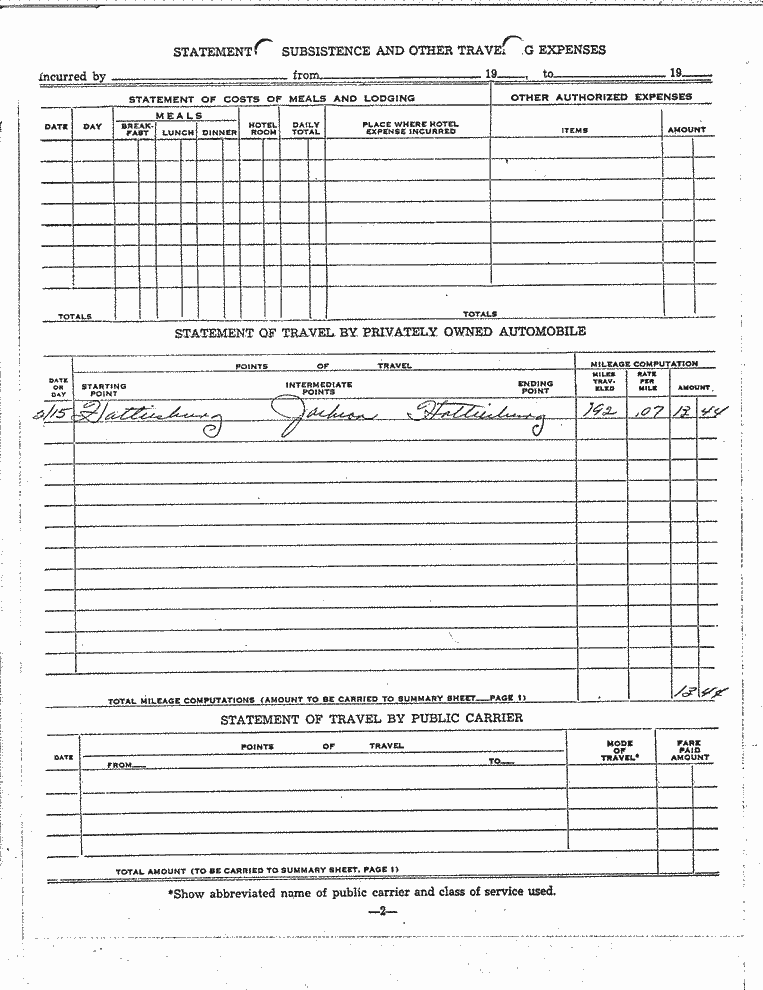 STATEMENT SUBSISTENCE AND OTHER TRAVE G EXPENSES
incurred by from 19 , to 19
STATEMENT OF COSTS OF MEALS AND LODGING OTHER AUTHORIZED EXPENSES
DATE DAY MEALS BREAK-FAST LUNCH DINNER HOTEL ROOM DAILY TOTAL PLACE WHERE HOTEL EXPENSE INCURRED ITEMS AMOUNT
TOTALS TOTALS
STATEMENT OF TRAVEL BY PRIVATELY OWNED AUTOMOBILE
POINTS OF TRAVEL MILEAGE COMPUTATION
DATE OR DAY STARTING POINT INTERMEDIATE POINTS ENDING POINT MILES TRAV-ELED RATE PER MILE AMOUNT
2/15 Hattiesburg Jackson Hattiesburg 192 .07 13 44
TOTAL MILEAGE COMPUTATIONS (AMOUNT TO BE CARRIED TO SUMMARY SHEET—PAGE 1) 13 44
STATEMENT OF TRAVEL BY PUBLIC CARRIER
DATE POINTS OF TRAVEL MODE OF TRAVEL* FARE PAID AMOUNT
FROM— TO—
TOTAL AMOUNT (TO BE CARRIED TO SUMMARY SHEET, PAGE 1)
*Show abbreviated name of public carrier and class of service used.
—2—